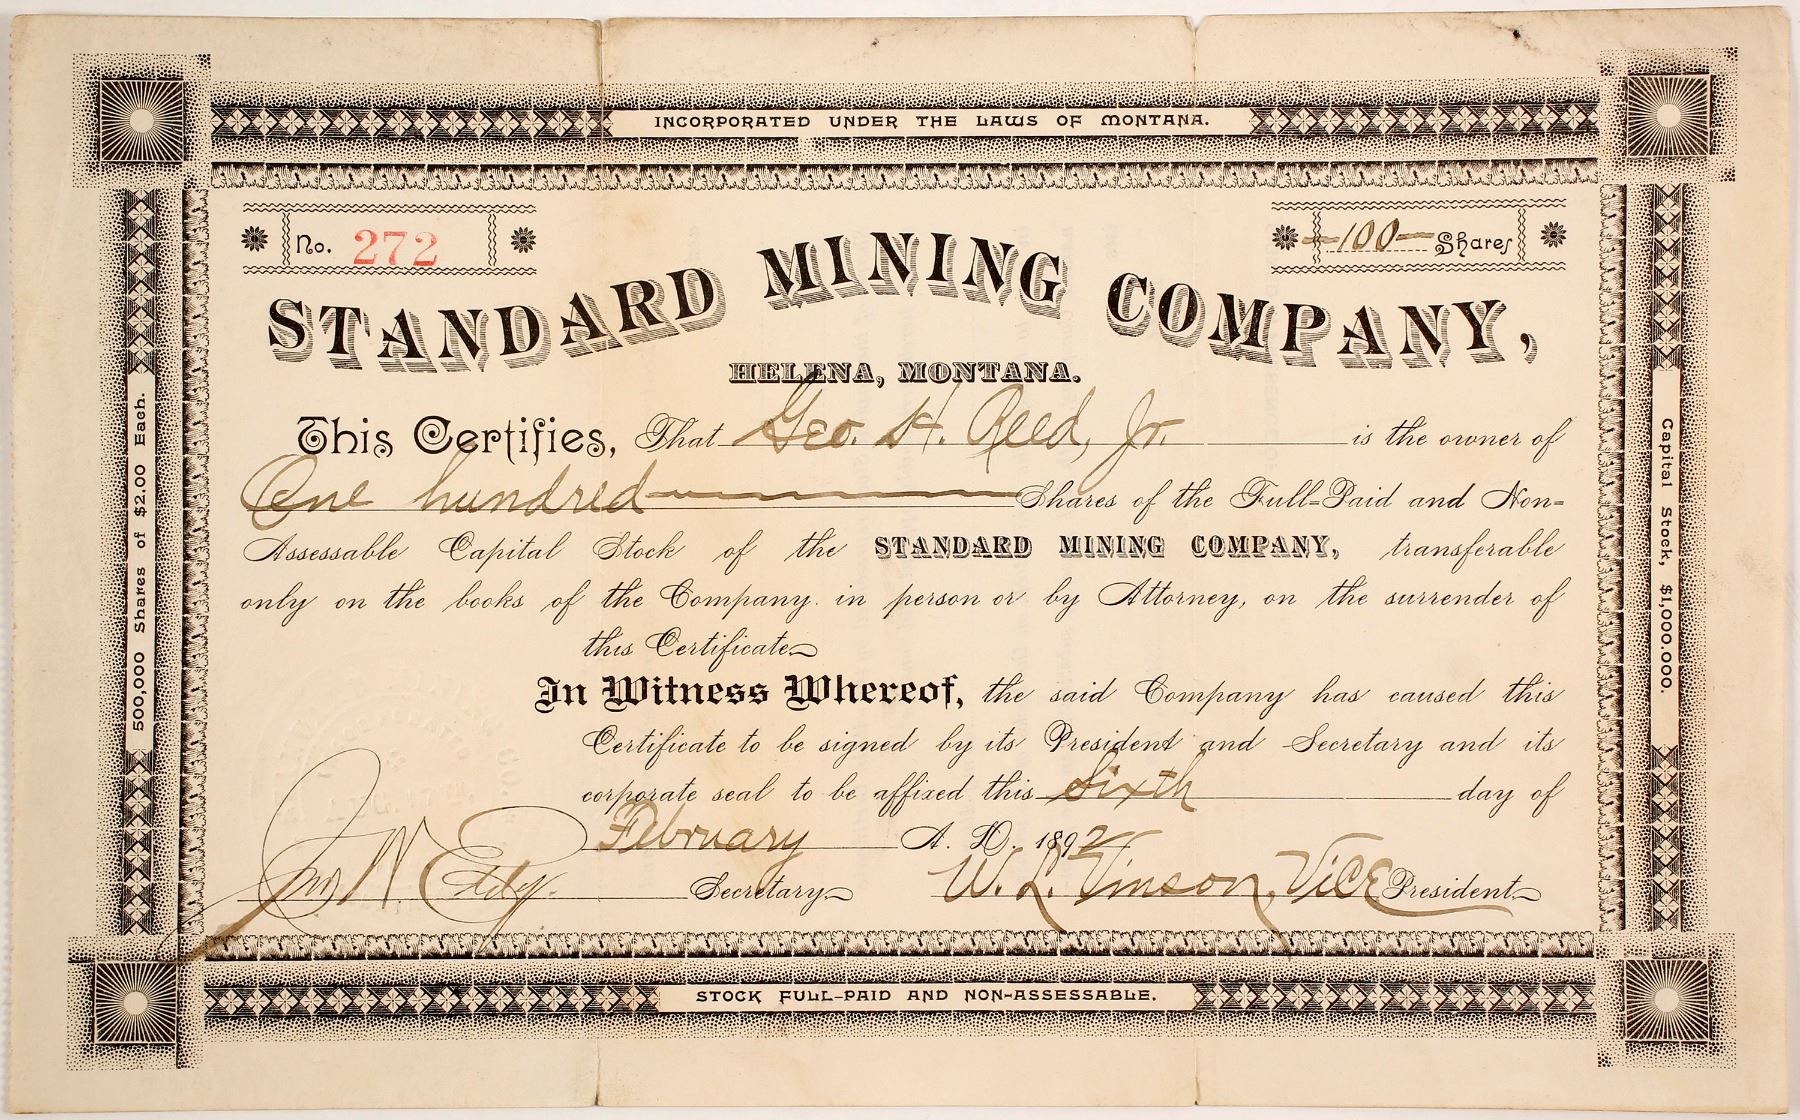 INCORPORATED UNDER THE LAWS OF MONTANA.
No. 272
-100- Shares
STANDARD MINING COMPANY,
HELENA, MONTANA.
This Certifies, That Geo. H. Reed, Jr. is the owner of
One hundred Shares of the Full-Paid and Non-
Assessable Capital Stock of the STANDARD MINING COMPANY, transferable
only on the books of the Company in person or by Attorney, on the surrender of
this Certificate
In Witness Whereof, the said Company has caused this
Certificate to be signed by its President and Secretary and its
corporate seal to be affixed this Sixth day of
February A. D. 1892
Jno. N. Eddy. Secretary
W. L. Vinson, Vice President
STOCK FULL-PAID AND NON-ASSESSABLE.
500,000 Shares of $2.00 Each.
Capital Stock, $1,000.000.